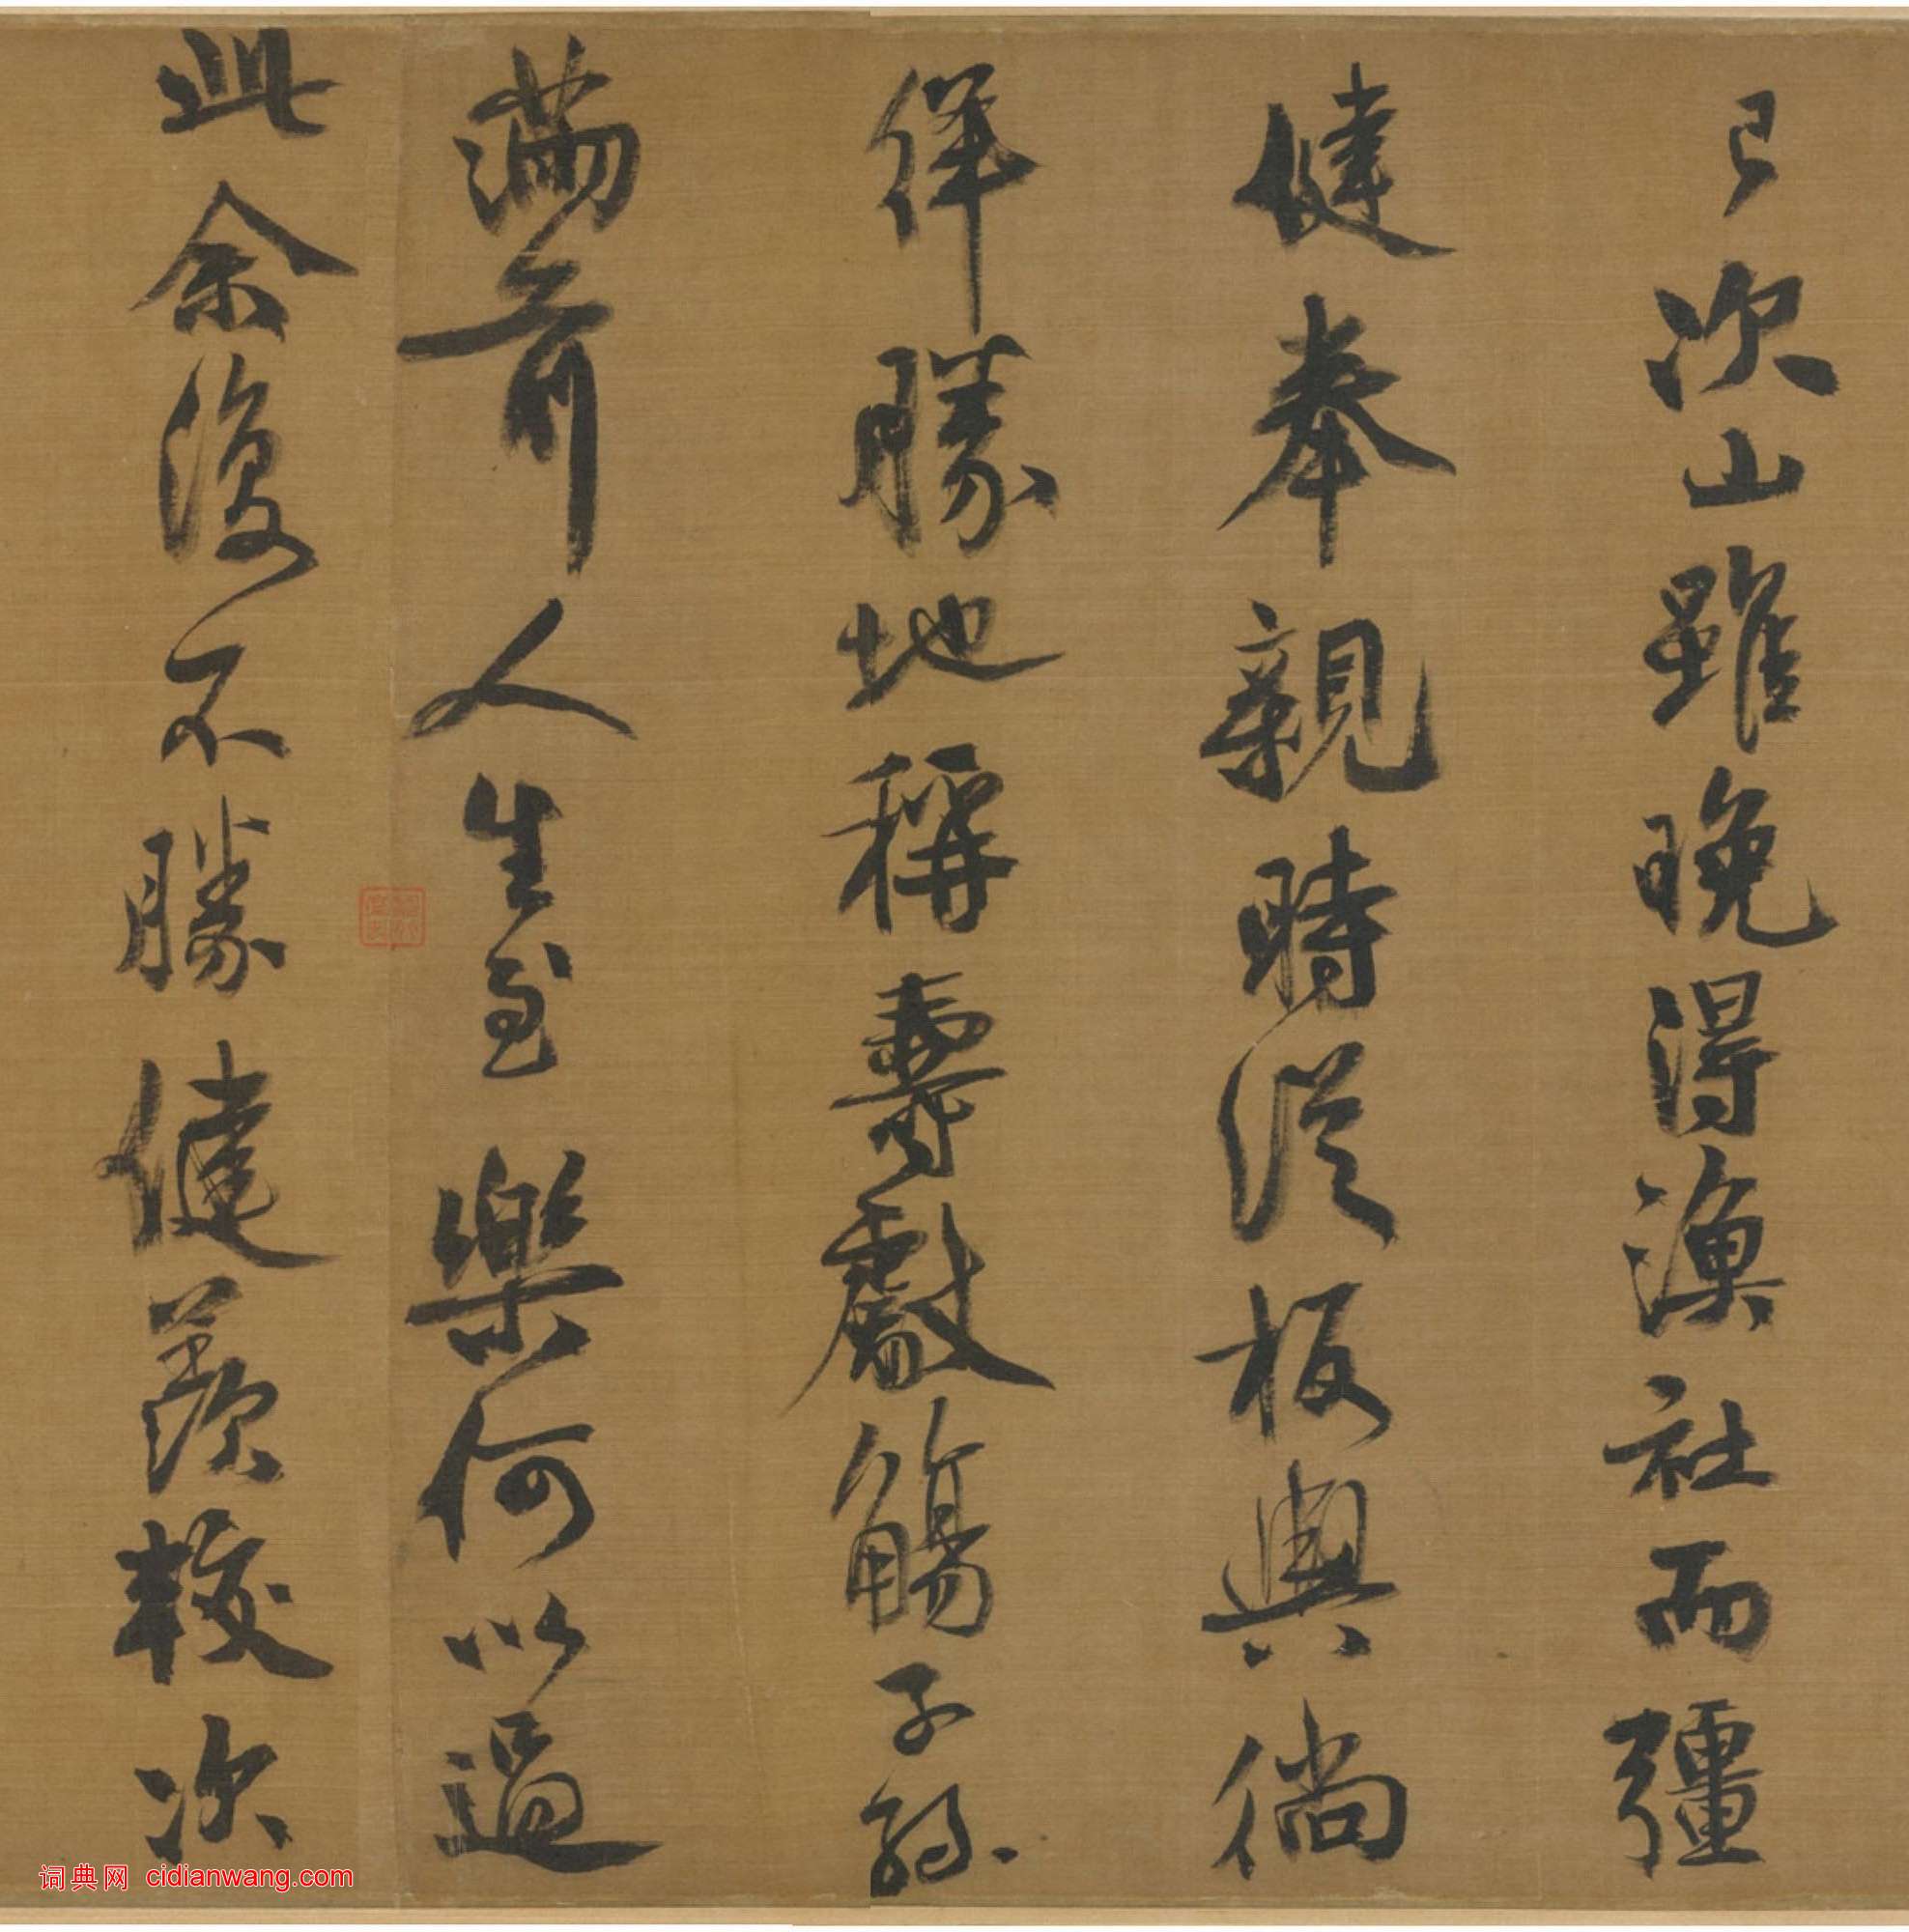 已次山雖晚得漁社而彊
健奉親時従板輿徜
徉勝地稱壽獻觴子孫
滿前人生至樂何以過
此余復不勝健羨較次
词典网 cidianwang.com